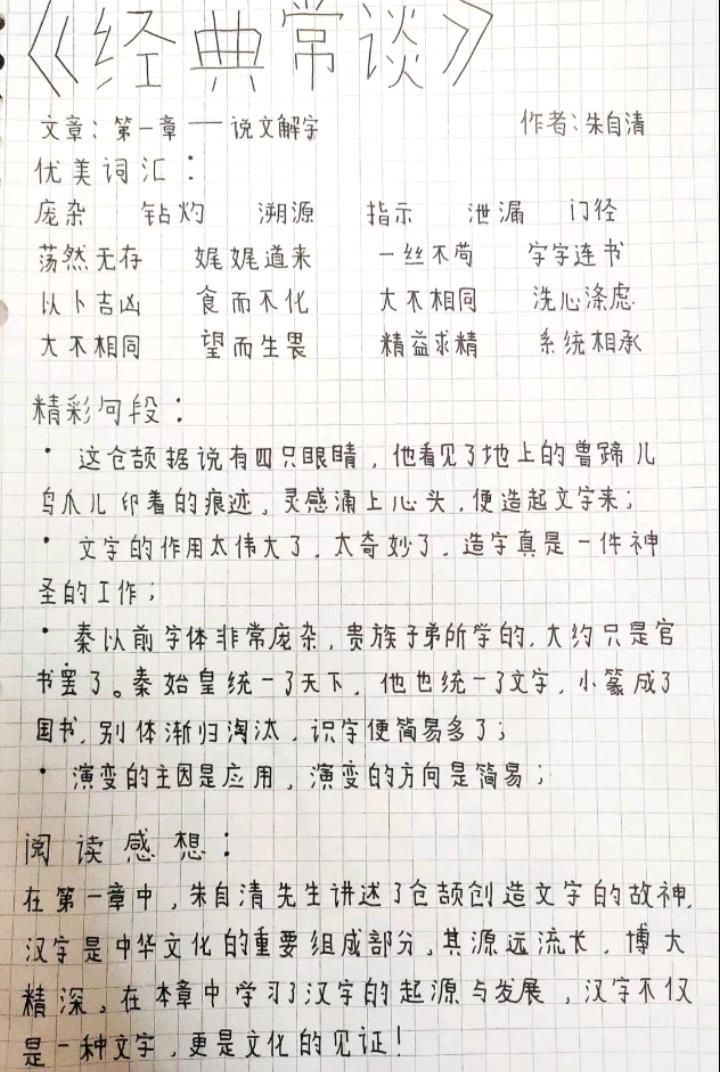 《经典常谈》
文章：第一章——说文解字 作者：朱自清
优美词汇：
庞杂 钻灼 溯源 指示 泄漏 门径
荡然无存 娓娓道来 一丝不苟 字字连书
以卜吉凶 食而不化 大不相同 洗心涤虑
大不相同 望而生畏 精益求精 系统相承
精彩句段：
· 这仓颉据说有四只眼睛，他看见了地上的兽蹄儿
鸟爪儿印着的痕迹，灵感涌上心头，便造起文字来；
· 文字的作用太伟大了，太奇妙了，造字真是一件神
圣的工作；
· 秦以前字体非常庞杂，贵族子弟所学的，大约只是官
书罢了。秦始皇统一了天下，他也统一了文字，小篆成了
国书，别体渐归淘汰，识字便简易多了；
· 演变的主因是应用，演变的方向是简易；
阅读感想：
在第一章中，朱自清先生讲述了仓颉创造文字的故神，
汉字是中华文化的重要组成部分，其源远流长，博大
精深。在本章中学习了汉字的起源与发展，汉字不仅
是一种文字，更是文化的见证！